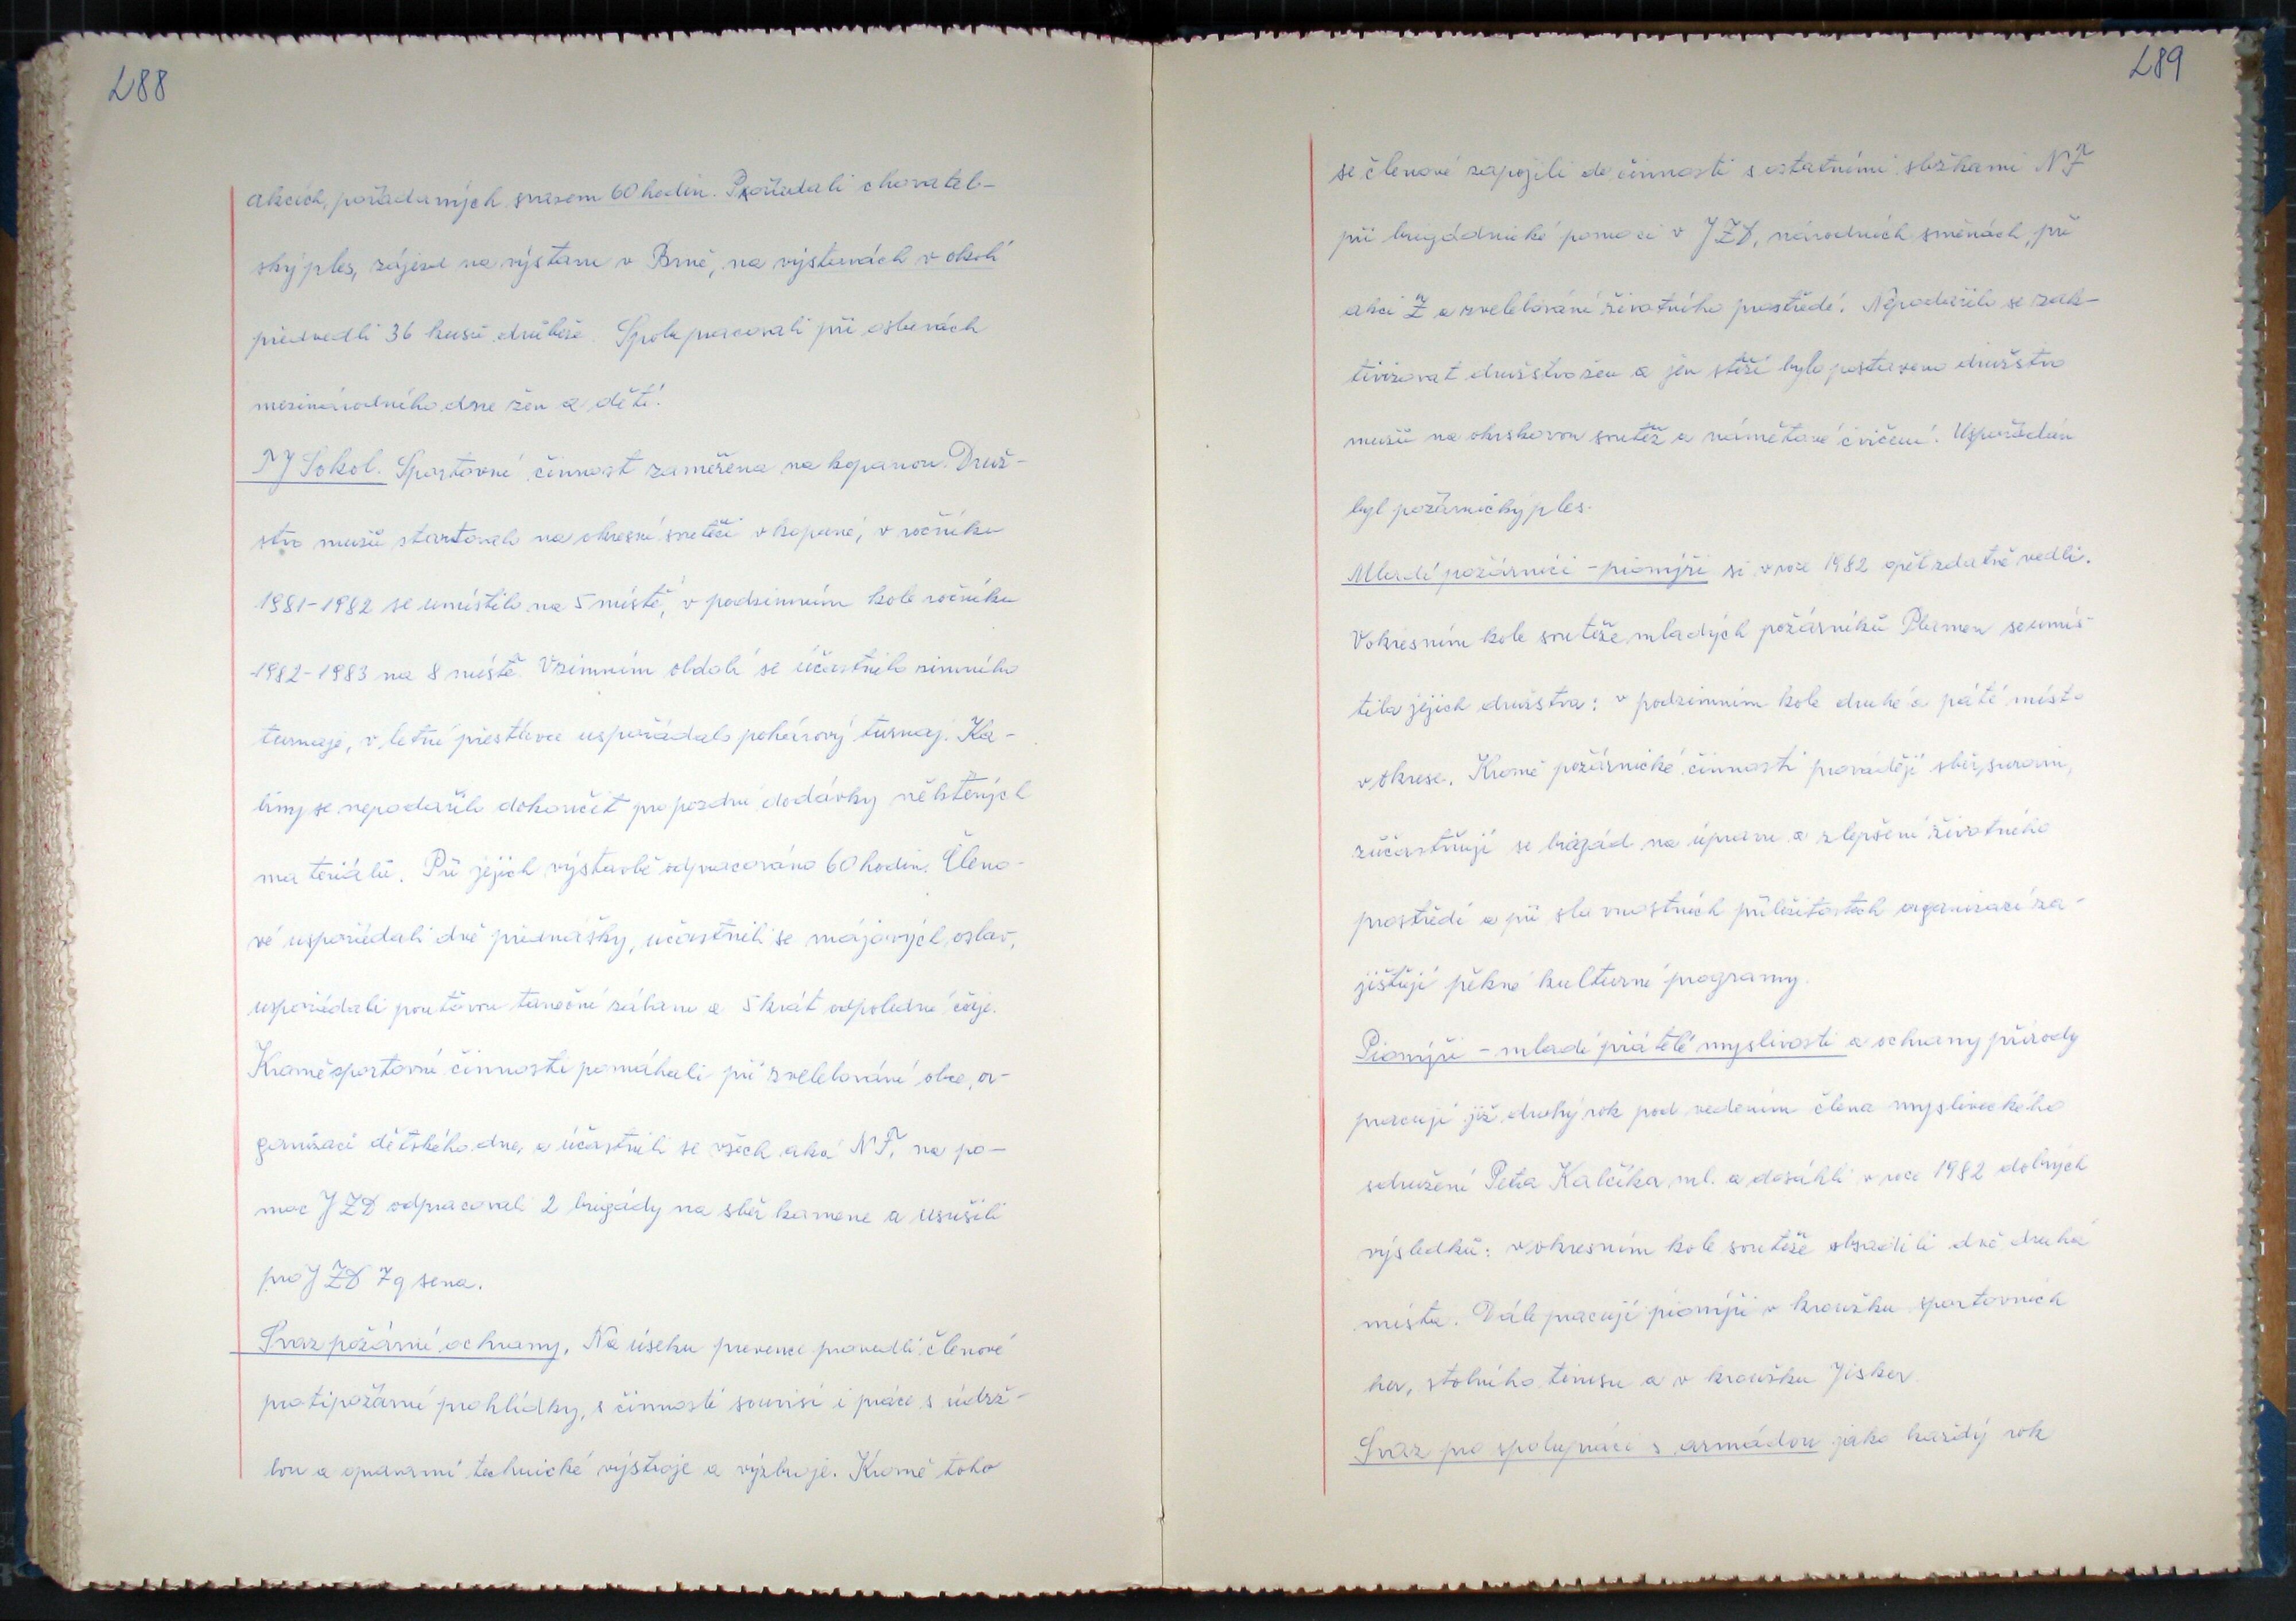 288
akcích, pořádaných svazem 60 hodin. Pořádali chovatel-
ský ples, zájezd na výstavu v Brně, na výstavách v okolí
předvedli 36 kusů drůbeže. Spolupracovali při oslavách
mezinárodního dne žen a dětí.
TJ Sokol. Sportovní činnost zaměřena na kopanou. Druž-
stvo mužů startovalo na okresní soutěži v kopané, v ročníku
1981-1982 se umístilo na 5 místě, v podzimním kole ročníku
1982-1983 na 8 místě. V zimním období se účastnilo zimního
turnaje, v letní přestávce uspořádalo pohárový turnaj. Ka-
biny se nepodařilo dokončit pro pozdní dodávky některých
materiálů. Při jejich výstavbě odpracováno 60 hodin. Členo-
vé uspořádali dvě přednášky, učastnili se májových oslav,
uspořádali pouťovou taneční zábavu a 5 krát odpolední čaje.
Kromě sportovní činnosti pomáhali při zvelebování obce, or-
ganizaci dětského dne, a účastnili se všech akcí NF, na po-
moc JZD odpracovali 2 brigády na sběr kamene a usušili
pro JZD 7q sena.
Svaz požární ochrany. Na úseku prevence provedli členové
protipožární prohlídky, s činností souvisí i práce s údrž-
bou a opravami technické výstroje a výzbroje. Kromě toho
289
se členové zapojili do činnosti s ostatními složkami NF
při brigádnické pomoci v JZD, národních směnách, při
akci Z a zvelebování životního prostředí. Nepodařilo se zak-
tivizovat družstvo žen a jen stěží bylo postaveno družstvo
mužů na okrskovou soutěž a námětové cvičení. Uspořádán
byl požárnický ples.
Mladí požárníci - pionýři si v roce 1982 opět zdatně vedli.
V okresním kole soutěže mladých požárníků Plamen se umís-
tila jejich družstva: v podzimním kole druhé a páté místo
v okrese. Kromě požárnické činnosti provádějí sběr surovin,
zúčastňují se brigád na úpravu a zlepšení životního
prostředí a při slavnostních příležitostech organizací za-
jišťují pěkné kulturní programy.
Pionýři - mladí přátelé myslivosti a ochrany přírody
pracují již druhý rok pod vedením člena mysliveckého
sdružení Petra Kalčíka ml. a dosáhli v roce 1982 dobrých
výsledků: v okresním kole soutěže obsadili dvě druhá
místa. Dále pracují pionýři v kroužku sportovních
her, stolního tenisu a v kroužku Jisker
Svaz pro spolupráci s armádou jako každý rok